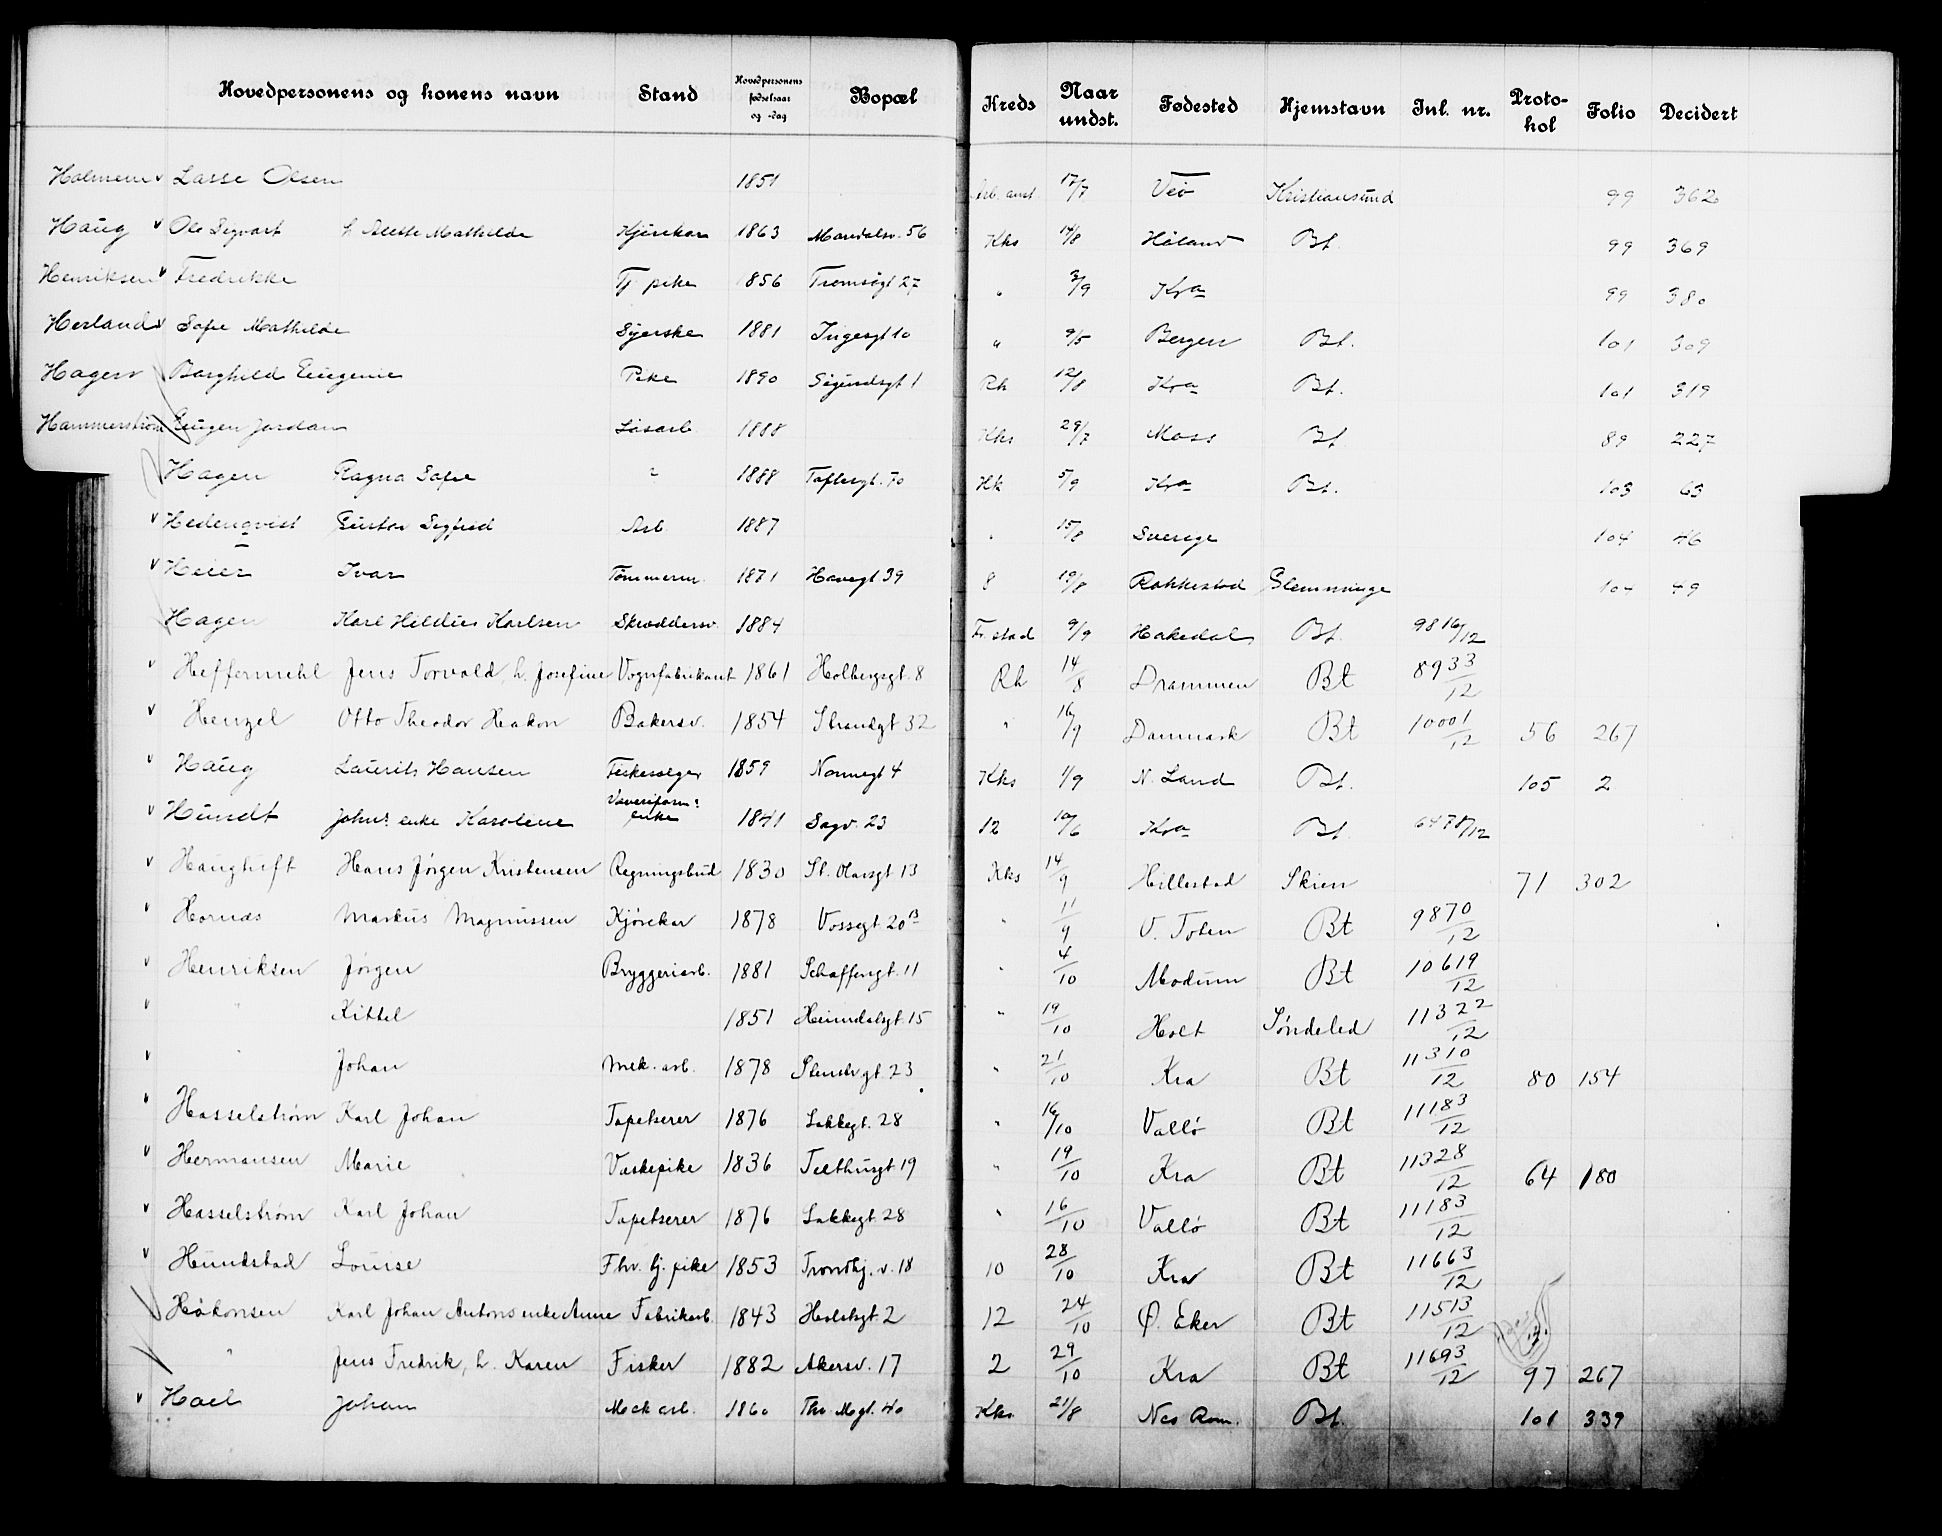 Hovedpersonens og konens navn Stand Hovedpersonens fødselsaar og -dag Bopæl Kreds Naar undst. Fødested Hjemstavn Inl. nr. Proto-kol Folio Decidert
Holmen v Lasse Olsen 1851 Arb. anst 17/7 Veö Kristiansund 99 362
Haug v Ole Sigvart h Alette Mathilde Kjørekar 1863 Maridalsv. 56 Kks 14/8 Høland Bt. 99 369
Henriksen v Fredrikke Tj pike 1856 Tromsøgt 27 " 3/9 Kra 99 380
Herland v Sofie Mathilde Syerske 1881 Ingesgt 10 " 9/5 Bergen Bt. 101 309
Hagen Borghild Eugenie Pike 1890 Sigurdsgt 1 Rh 12/8 Kra Bt. 101 319
Hammerstrøm Eugen Jordan Løsarb. 1888 Kks 29/7 Moss Bt 89 227
Hagen Ragna Sofie " 1888 Toftesgt. 70 Hk 5/9 Kra Bt. 103 63
v Hedenqvist Gustav Sigfred Arb. 1887 " 15/8 Sverige 104 46
v Heier Ivar Tømmerm. 1871 Havegt 39 8 19/8 Rakkestad Glemminge 104 49
Hagen Karl Hildius Karlsen Skræddersv. 1884 Fr.stad 9/9 Hakedal Bt. 9816/12
v Heffermehl Jens Torvald, h. Josefine Vognfabrikant 1861 Holbergsgt. 8 Rh 14/8 Drammen Bt 8933/12
v Henzel Otto Theodor Hakon Bakersv. 1854 Strandgt 32 " 16/9 Danmark Bt 10001/12 56 267
v Haug Laurits Hansen Fiskesælger 1859 Nonnegt 4 Kks 1/9 N. Land Bt. 105 2
v Hundt Johns enke Karoline enke 1841 Sagv. 23 12 10/6 Kra Bt. 6478/12
v Haugtuft Hans Jørgen Kristensen Regningsbud 1830 St. Olavsgt 13 Kks 14/9 Hillestad Skien 71 302
v Hornæs Markus Magnussen Kjørekar 1878 Vossegt 20 B " 11/9 V. Toten Bt 9870/12
v Henriksen Jørgen Bryggeriarb. 1881 Schaffengt. 11 " 4/10 Modum Bt 10619/12
v " Kittel 1851 Heimdalsgt. 15 " 19/10 Holt Søndeled 11322/12
v " Johan Mek. arb. 1878 Stensbrgt. 23 " 21/10 Kra Bt 11310/12 80 154
v Hasselstrøm Karl Johan Tapetserer 1876 Lakkegt. 28 " 16/10 Vallø Bt 11183/12
v Hermansen Marie Vaskepike 1836 Telthusgt 19 " 19/10 Kra Bt 11328/12 64 180
v Hasselstrøm Karl Johan Tapetserer 1876 Lakkegt. 28 " 16/10 Vallø Bt 11183/12
v Hundstad Louise Fhv. tj. pike 1853 Trondhj. v. 18 10 28/10 Kra Bt 11663/12
Håkonsen Karl Johan Antons enke Anne Fabrikarb. 1843 Holstsgt. 2 12 24/10 Ø. Eker Bt 11513/12
" Jens Fredrik, h. Karen Fisker 1882 Akersv. 17 2 29/10 Kra Bt 11693/12 97 267
v Hoel Johan Mek arb. 1860 Thv. Mgt. 40 Kks. 21/8 Nes Rom. Bt. 101 339